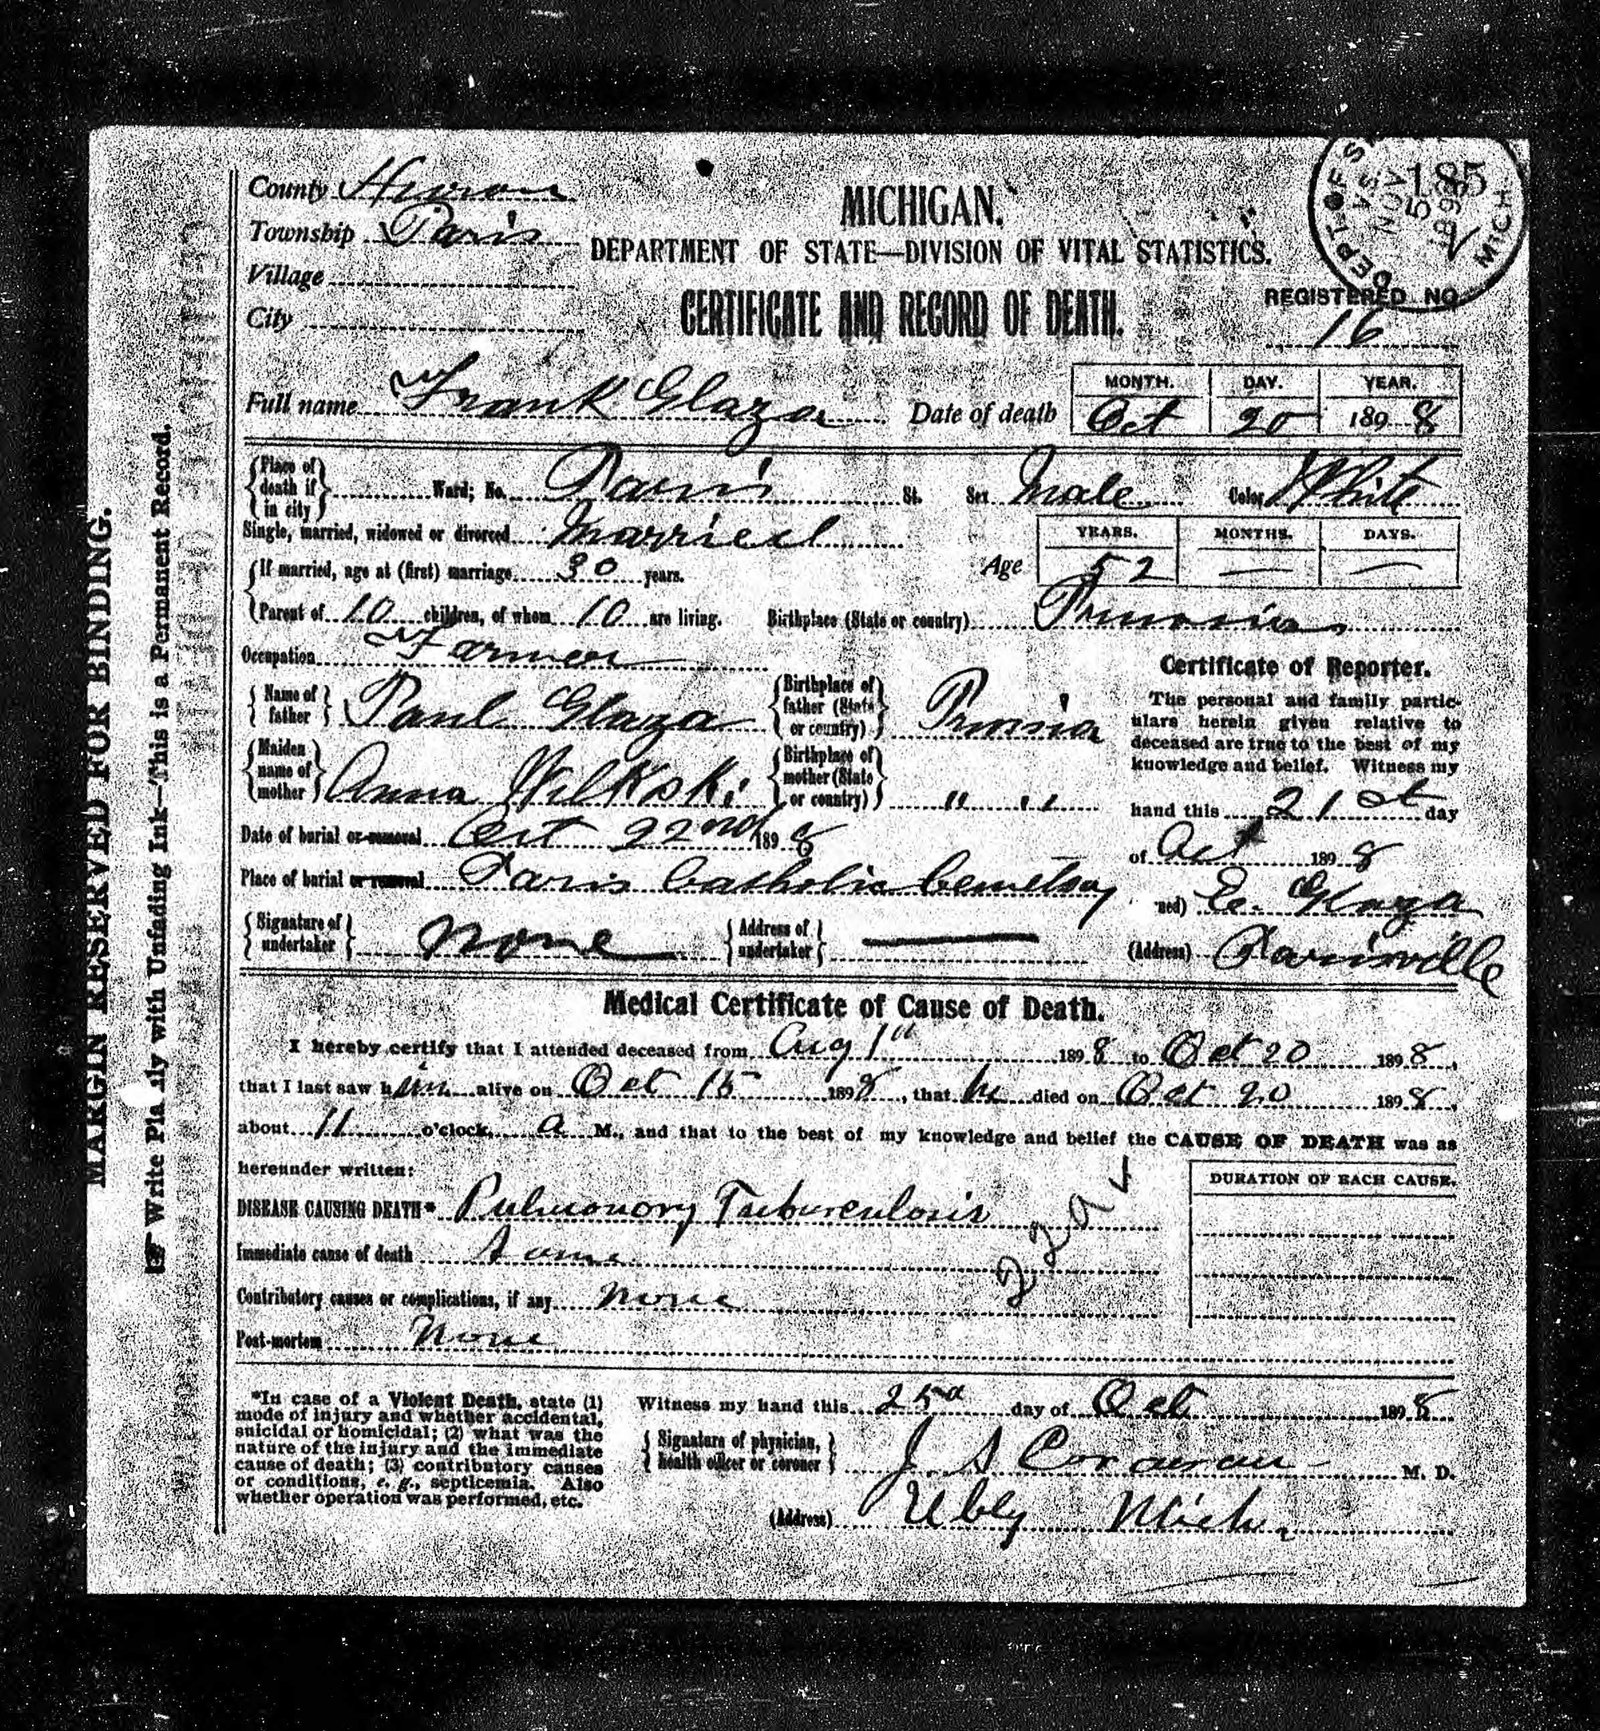 County Huron
Township Paris
Village
City
MICHIGAN.
DEPARTMENT OF STATE—DIVISION OF VITAL STATISTICS.
CERTIFICATE AND RECORD OF DEATH.
DEPT. OF S
NOV
5
1898
MICH.
185
REGISTERED NO.
16
Full name Frank Glaza Date of death
MONTH. DAY. YEAR.
Oct 20 1898
Place of death if in city Ward; No. Paris St. Sex Male Color White
Single, married, widowed or divorced Married
Age
YEARS. MONTHS. DAYS.
52 — —
If married, age at (first) marriage 30 years.
Parent of 10 children, of whom 10 are living. Birthplace (State or country)
Occupation Farmer
Name of father Paul Glaza Birthplace of father (State or country)
Maiden name of mother Anna Wilkski Birthplace of mother (State or country) " "
Date of burial or removal Oct 22nd 1898
Place of burial or removal Paris Catholic Cemetery
Signature of undertaker None Address of undertaker —
Certificate of Reporter.
The personal and family partic-
ulars herein given relative to
deceased are true to the best of my
knowledge and belief. Witness my
hand this 21st day
of Oct 1898
ned) E. Glaza
(Address) Parisville
Medical Certificate of Cause of Death.
I hereby certify that I attended deceased from Aug 1st 1898 to Oct 20 1898,
that I last saw him alive on Oct 15 1898, that he died on Oct 20 1898,
about 11 o'clock, a M., and that to the best of my knowledge and belief the CAUSE OF DEATH was as
hereunder written:
DURATION OF EACH CAUSE.
DISEASE CAUSING DEATH* Pulmonory Tuburculosis
Immediate cause of death Same
Contributory causes or complications, if any None
Post-mortem None
*In case of a Violent Death, state (1)
mode of injury and whether accidental,
suicidal or homicidal; (2) what was the
nature of the injury and the immediate
cause of death; (3) contributory causes
or conditions, e. g., septicemia. Also
whether operation was performed, etc.
Witness my hand this 25 day of Oct 1898
Signature of physician, health officer or coroner J. S. Corcoran M. D.
(Address) Ubly Mich.
MARGIN RESERVED FOR BINDING.
Write Pla ily with Unfading Ink—This is a Permanent Record.